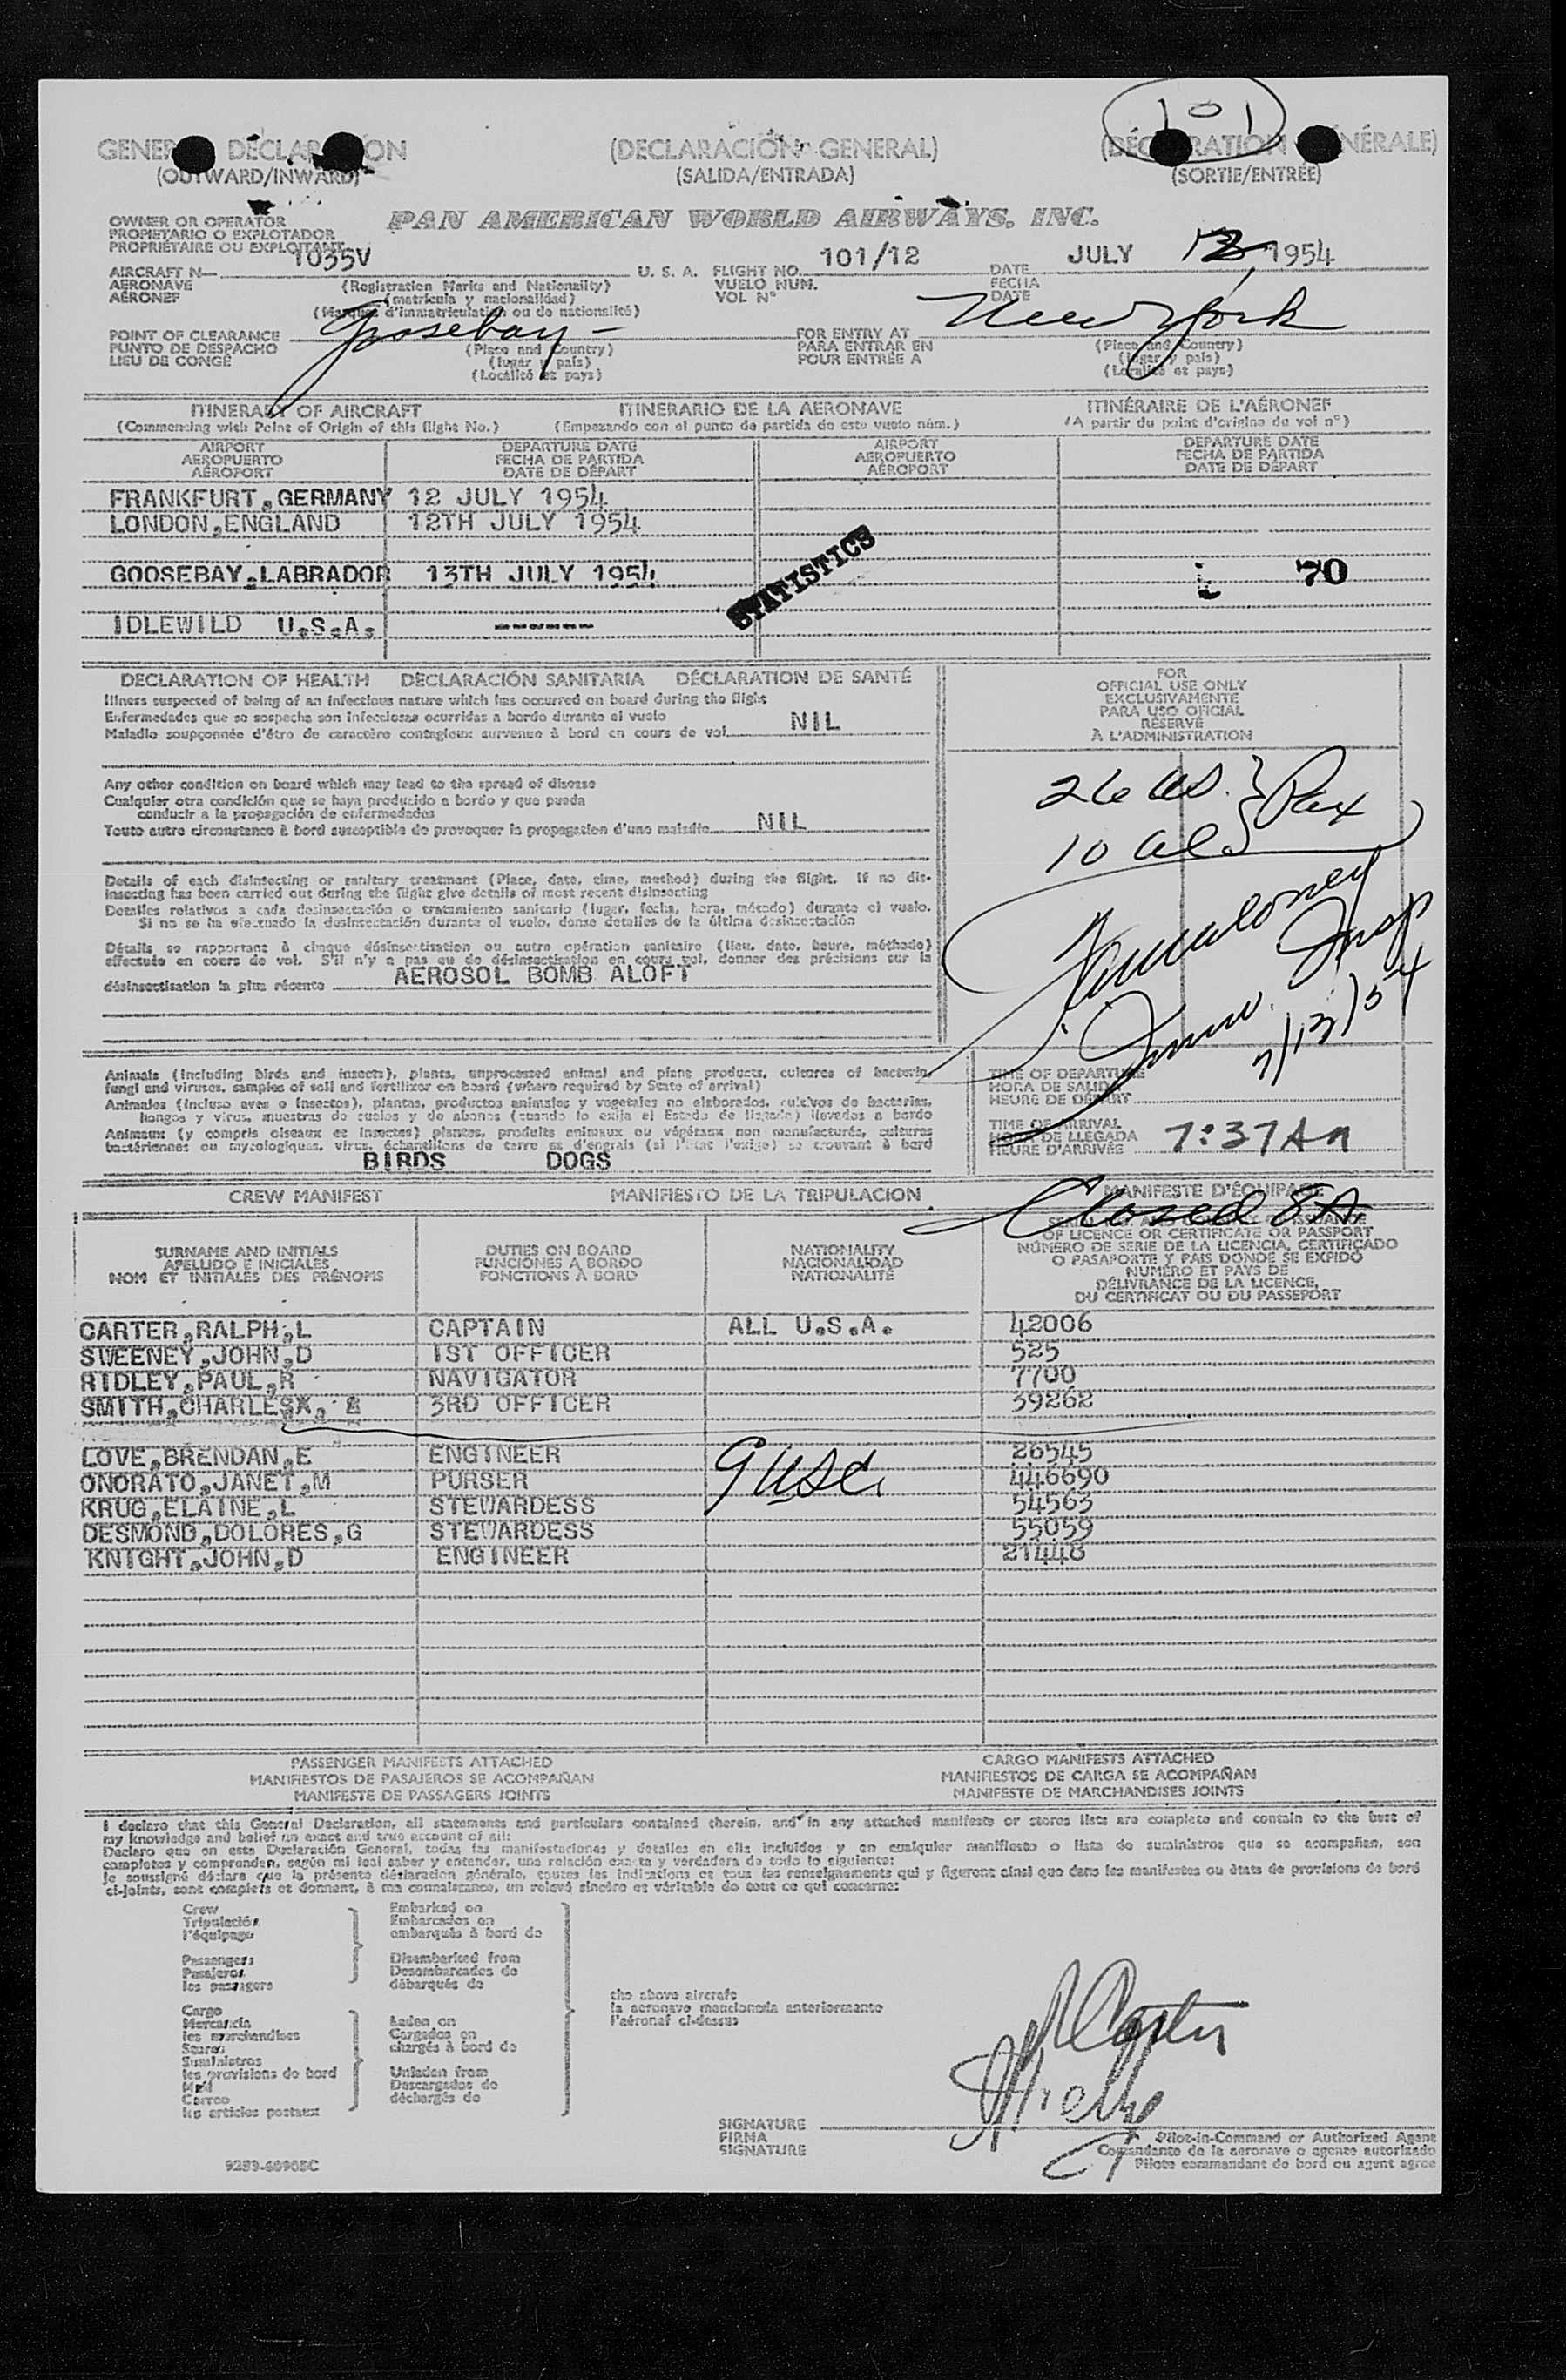 101
GENERAL DECLARATION (DECLARACIÓN GENERAL) (DÉCLARATION GÉNÉRALE)
(OUTWARD/INWARD) (SALIDA/ENTRADA) (SORTIE/ENTRÉE)
OWNER OR OPERATOR
PROPIETARIO O EXPLOTADOR
PROPRIÉTAIRE OU EXPLOITANT
PAN AMERICAN WORLD AIRWAYS, INC.
1035V U. S. A. FLIGHT NO. 101/12 DATE JULY 13 1954
AIRCRAFT N—
AERONAVE (Registration Marks and Nationality) VUELO NUM. FECHA
AÉRONEF (matrícula y nacionalidad) VOL N° DATE
(Marques d'immatriculation ou de nationalité)
POINT OF CLEARANCE Goosebay - FOR ENTRY AT New York
PUNTO DE DESPACHO (Place and Country) PARA ENTRAR EN (Place and Country)
LIEU DE CONGÉ (lugar y país) POUR ENTRÉE A (lugar y país)
(Localité et pays) (Localité et pays)
ITINERARY OF AIRCRAFT ITINERARIO DE LA AERONAVE ITINÉRAIRE DE L'AÉRONEF
(Commencing with Point of Origin of this flight No.) (Empezando con el punto de partida de este vuelo núm.) (A partir du point d'origine du vol n°)
AIRPORT DEPARTURE DATE AIRPORT DEPARTURE DATE
AEROPUERTO FECHA DE PARTIDA AEROPUERTO FECHA DE PARTIDA
AÉROPORT DATE DE DÉPART AÉROPORT DATE DE DÉPART
FRANKFURT,GERMANY 12 JULY 1954
LONDON,ENGLAND 12TH JULY 1954
GOOSEBAY,LABRADOR 13TH JULY 1954 STATISTICS 70
IDLEWILD U.S.A. -----
DECLARATION OF HEALTH DECLARACIÓN SANITARIA DÉCLARATION DE SANTÉ
Illness suspected of being of an infectious nature which has occurred on board during the flight
Enfermedades que se sospecha son infecciosas ocurridas a bordo durante el vuelo
Maladie soupçonnée d'être de caractère contagieux survenue à bord en cours de vol NIL
Any other condition on board which may lead to the spread of disease
Cualquier otra condición que se haya producido a bordo y que pueda
conducir a la propagación de enfermedades
Toute autre circonstance à bord susceptible de provoquer la propagation d'une maladie NIL
Details of each disinsecting or sanitary treatment (Place, date, time, method) during the flight. If no dis-
insecting has been carried out during the flight give details of most recent disinsecting
Detalles relativos a cada desinsectación o tratamiento sanitario (lugar, fecha, hora, método) durante el vuelo.
Si no se ha efectuado la desinsectación durante el vuelo, dense detalles de la última desinsectación
Détails se rapportant à chaque désinsectisation ou autre opération sanitaire (lieu, date, heure, méthode)
effectuée en cours de vol. S'il n'y a pas eu de désinsectisation en cours vol, donner des précisions sur la
désinsectisation la plus récente AEROSOL BOMB ALOFT
FOR
OFFICIAL USE ONLY
EXCLUSIVAMENTE
PARA USO OFICIAL
RÉSERVÉ
À L'ADMINISTRATION
26 US. } Pax
10 Al }
Immig. Insp
7/13/54
Animals (including birds and insects), plants, unprocessed animal and plant products, cultures of bacteria,
fungi and viruses, samples of soil and fertilizer on board (where required by State of arrival)
Animales (incluso aves e insectos), plantas, productos animales y vegetales no elaborados, cultivos de bacterias,
hongos y virus, muestras de suelos y de abonos (cuando lo exija el Estado de llegada) llevados a bordo
Animaux (y compris oiseaux et insectes) plantes, produits animaux ou végétaux non manufacturés, cultures
bactériennes ou mycologiques, virus, échantillons de terre et d'engrais (si l'état l'exige) se trouvant à bord
BIRDS DOGS
TIME OF DEPARTURE
HORA DE SALIDA
HEURE DE DÉPART
TIME OF ARRIVAL
HORA DE LLEGADA 7:37AM
HEURE D'ARRIVÉE
CREW MANIFEST MANIFIESTO DE LA TRIPULACION MANIFESTE D'ÉQUIPAGE
Closed 8A
SURNAME AND INITIALS
APELLIDO E INICIALES
NOM ET INITIALES DES PRÉNOMS
DUTIES ON BOARD
FUNCIONES A BORDO
FONCTIONS À BORD
NATIONALITY
NACIONALIDAD
NATIONALITÉ
OF LICENCE OR CERTIFICATE OR PASSPORT
NÚMERO DE SERIE DE LA LICENCIA, CERTIFICADO
O PASAPORTE Y PAIS DONDE SE EXPIDÓ
NUMÉRO ET PAYS DE
DÉLIVRANCE DE LA LICENCE,
DU CERTIFICAT OU DU PASSEPORT
CARTER,RALPH,L CAPTAIN ALL U.S.A. 42006
SWEENEY,JOHN,D 1ST OFFICER 525
RIDLEY,PAUL,R NAVIGATOR 7700
SMITH,CHARLES 3RD OFFICER 39262
LOVE,BRENDAN,E ENGINEER 26545
ONORATO,JANET,M PURSER 9 USC 446690
KRUG,ELAINE,L STEWARDESS 54563
DESMOND,DOLORES,G STEWARDESS 55059
KNIGHT,JOHN,D ENGINEER 21448
PASSENGER MANIFESTS ATTACHED CARGO MANIFESTS ATTACHED
MANIFIESTOS DE PASAJEROS SE ACOMPAÑAN MANIFIESTOS DE CARGA SE ACOMPAÑAN
MANIFESTE DE PASSAGERS JOINTS MANIFESTE DE MARCHANDISES JOINTS
I declare that this General Declaration, all statements and particulars contained therein, and in any attached manifests or stores lists are complete and contain to the best of
my knowledge and belief an exact and true account of all:
Declaro que en esta Declaración General, todas las manifestaciones y detalles en ella incluidos y en cualquier manifiesto o lista de suministros que se acompañan, son
completos y comprenden, según mi leal saber y entender, una relación exacta y verdadera de todo lo siguiente:
Je soussigné déclare que la présente déclaration générale, toutes les indications et tous les renseignements qui y figurent ainsi que dans les manifestes ou états de provisions de bord
ci-joints, sont complets et donnent, à ma connaissance, un relevé sincère et véritable de tout ce qui concerne:
Crew Embarked on
Tripulación Embarcados en
l'équipage embarqués à bord de
Passengers Disembarked from
Pasajeros Desembarcados de
les passagers débarqués de
the above aircraft
la aeronave mencionada anteriormente
l'aéronef ci-dessus
Cargo
Mercancía Laden on
les marchandises Cargados en
Stores chargés à bord de
Suministros
les provisions de bord Unladen from
Mail Descargados de
Correo déchargés de
les articles postaux
R Carter
SIGNATURE
FIRMA
SIGNATURE
Pilot-in-Command or Authorized Agent
Comandante de la aeronave o agente autorizado
Pilote commandant de bord ou agent agréé
9283-60905C